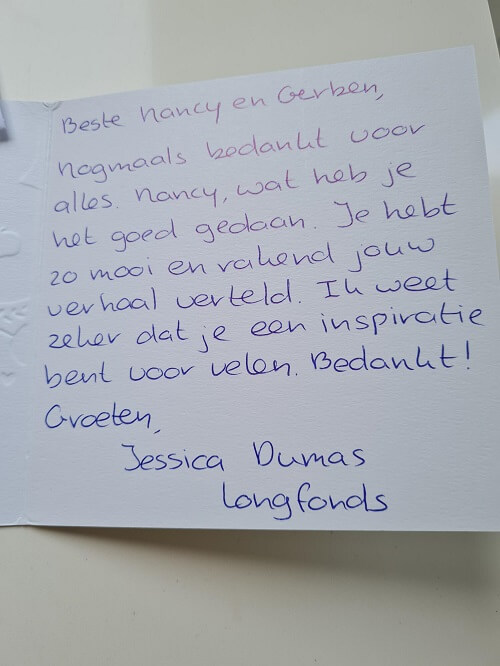 Beste Nancy en Gerben,
Nogmaals bedankt voor
alles. Nancy, wat heb je
het goed gedaan. Je hebt
zo mooi en rakend jouw
verhaal verteld. Ik weet
zeker dat je een inspiratie
bent voor velen. Bedankt!
Groeten,
Jessica Dumas
Longfonds